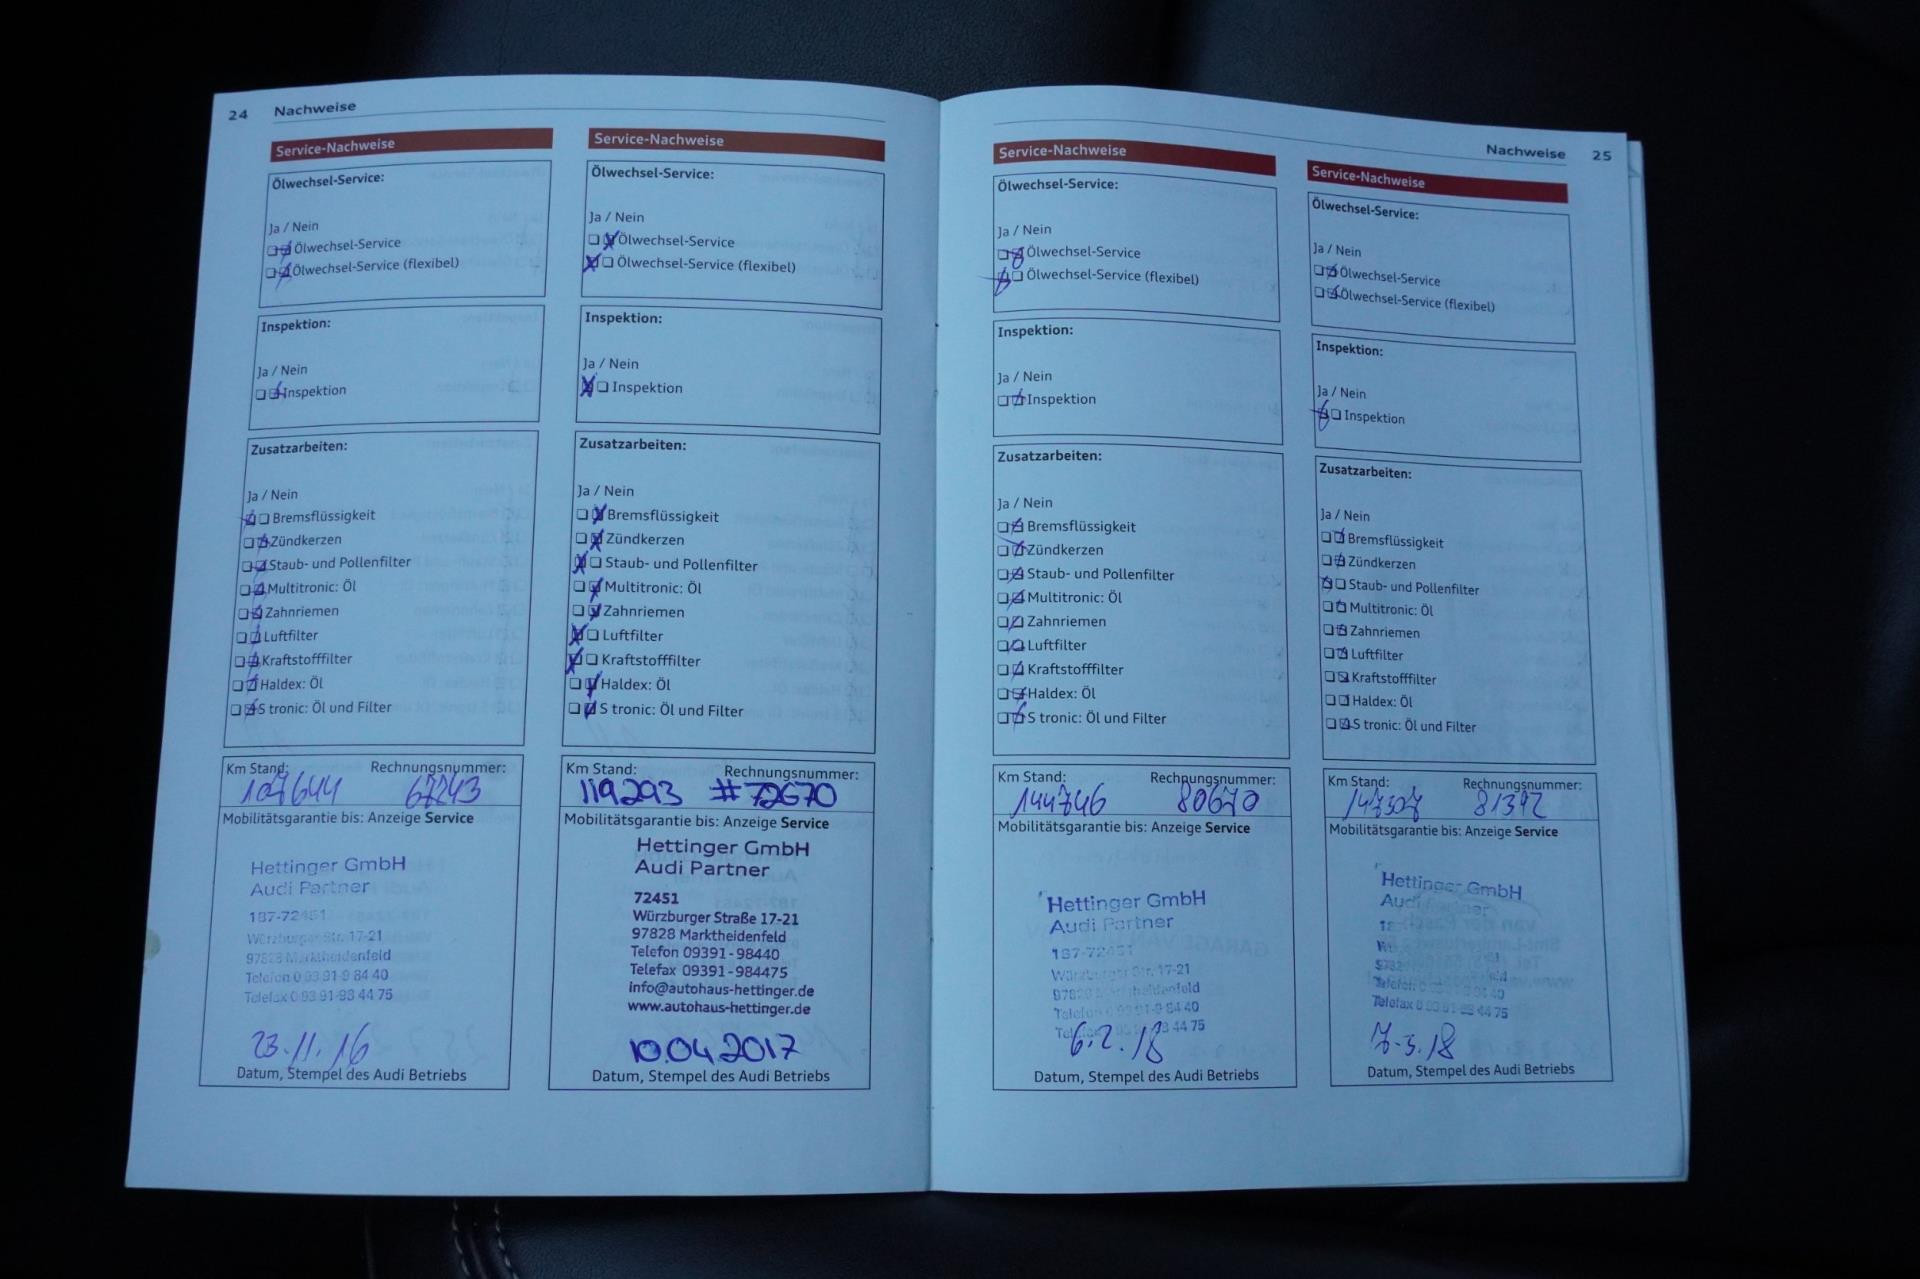 24 Nachweise
Service-Nachweise
Ölwechsel-Service:
Ja / Nein
Ölwechsel-Service
Ölwechsel-Service (flexibel)
Inspektion:
Ja / Nein
Inspektion
Zusatzarbeiten:
Ja / Nein
Bremsflüssigkeit
Zündkerzen
Staub- und Pollenfilter
Multitronic: Öl
Zahnriemen
Luftfilter
Kraftstofffilter
Haldex: Öl
S tronic: Öl und Filter
Km Stand: Rechnungsnummer:
107644 67243
Mobilitätsgarantie bis: Anzeige Service
Hettinger GmbH
Audi Partner
187-72451
Würzburger Str. 17-21
97828 Marktheidenfeld
Telefon 0 93 91-9 84 40
Telefax 0 93 91-98 44 75
23.11.16
Datum, Stempel des Audi Betriebs
Service-Nachweise
Ölwechsel-Service:
Ja / Nein
Ölwechsel-Service
Ölwechsel-Service (flexibel)
Inspektion:
Ja / Nein
Inspektion
Zusatzarbeiten:
Ja / Nein
Bremsflüssigkeit
Zündkerzen
Staub- und Pollenfilter
Multitronic: Öl
Zahnriemen
Luftfilter
Kraftstofffilter
Haldex: Öl
S tronic: Öl und Filter
Km Stand: Rechnungsnummer:
119293 #72670
Mobilitätsgarantie bis: Anzeige Service
Hettinger GmbH
Audi Partner
72451
Würzburger Straße 17-21
97828 Marktheidenfeld
Telefon 09391-98440
Telefax 09391-984475
info@autohaus-hettinger.de
www.autohaus-hettinger.de
10.04.2017
Datum, Stempel des Audi Betriebs
Nachweise 25
Service-Nachweise
Ölwechsel-Service:
Ja / Nein
Ölwechsel-Service
Ölwechsel-Service (flexibel)
Inspektion:
Ja / Nein
Inspektion
Zusatzarbeiten:
Ja / Nein
Bremsflüssigkeit
Zündkerzen
Staub- und Pollenfilter
Multitronic: Öl
Zahnriemen
Luftfilter
Kraftstofffilter
Haldex: Öl
S tronic: Öl und Filter
Km Stand: Rechnungsnummer:
144746 80670
Mobilitätsgarantie bis: Anzeige Service
Hettinger GmbH
Audi Partner
187-72451
Würzburger Str. 17-21
97828 Marktheidenfeld
Telefon 0 93 91-9 84 40
44 75
6.2.18
Datum, Stempel des Audi Betriebs
Service-Nachweise
Ölwechsel-Service:
Ja / Nein
Ölwechsel-Service
Ölwechsel-Service (flexibel)
Inspektion:
Ja / Nein
Inspektion
Zusatzarbeiten:
Ja / Nein
Bremsflüssigkeit
Zündkerzen
Staub- und Pollenfilter
Multitronic: Öl
Zahnriemen
Luftfilter
Kraftstofffilter
Haldex: Öl
S tronic: Öl und Filter
Km Stand: Rechnungsnummer:
147307 81392
Mobilitätsgarantie bis: Anzeige Service
Hettinger GmbH
Audi Partner
Telefon
Telefax 0 93 91-98 44 75
7.3.18
Datum, Stempel des Audi Betriebs